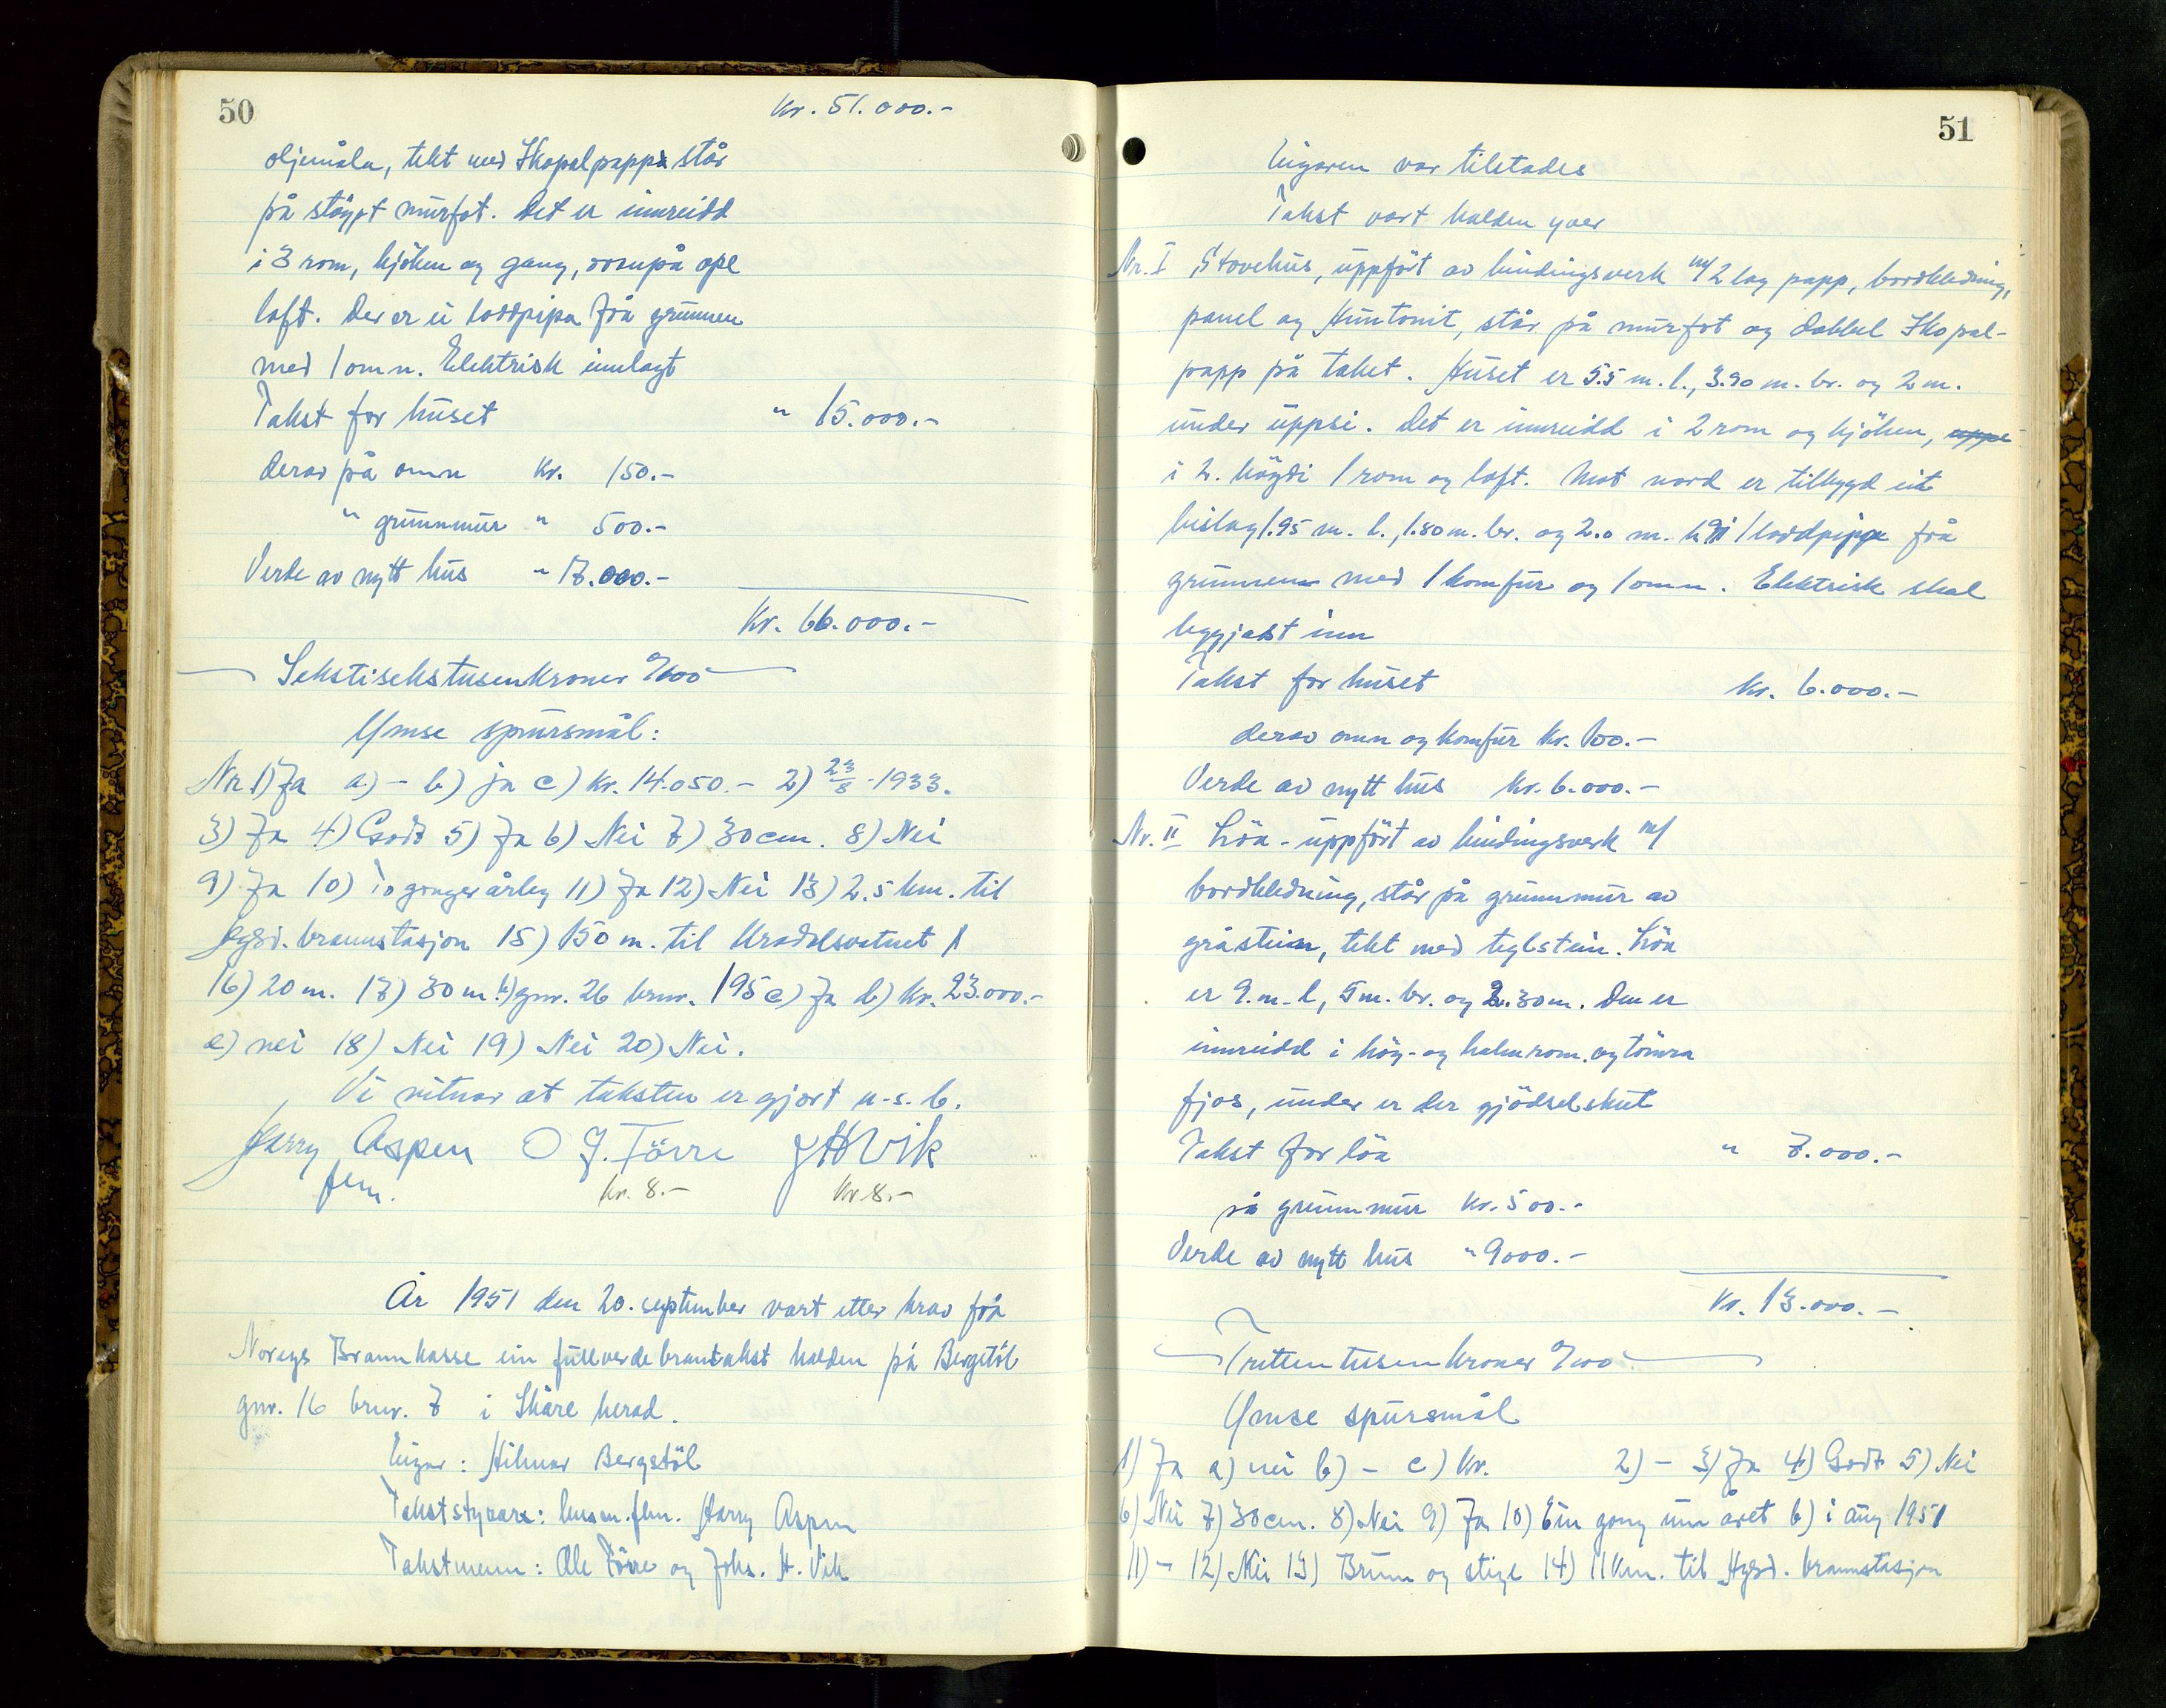 50
Kr. 51.000.-
oljemåla, tekt med Skopalpapp står
på støypt murfot. Det er innreidd
i 3 rom, kjöken og gang, ovenpå ope
loft. Der er ei loddpipa frå grunnen
med 1 omn. Elektrisk innlagt
Takst for huset " 15.000.-
derav på omn Kr. 150.-
" grunnmur " 500.-
Verde av nytt hus " 17.000.-
Kr. 66.000.-
Sekstisekstusenkroner 0/100
Ymse spursmål:
Nr. 1) Ja a) - b) ja c) Kr. 14.050.- 2) 23/8 - 1933.
3) Ja 4) Godt 5) Ja 6) Nei 7) 30 cm. 8) Nei
9) Ja 10) To gonger årleg 11) Ja 12) Nei 13) 2.5 km. til
Hgsd. brannstasjon 15) 150 m. til Kradalsvatnet
16) 20 m. 17) 30 m. b) gnr. 26 bnr. 195 c) Ja d) Kr. 23.000.-
e) nei 18) Nei 19) Nei 20) Nei.
Vi vitnar at taksten er gjort u.s.b.
Harry Aspen O J. Törre J H Vik
flm. kr. 8.- kr. 8.-
År 1951 den 20. september vart etter krav frå
Noregs Brannkasse ein fullverde branntakst halden på Bergstöl
gnr. 16 bnr. 7 i Skåre herad.
Eigar: Hilmar Bergstöl
Takststyrar: lensm.flm. Harry Aspen
Takstmenn: Ole Törre og Johs. H. Vik
51
Eigaren var tilstades
Takst vart halden yver
Nr. I Stovehus, uppfört av bindingsverk m/ 2 lag papp, bordkledning,
panel og Huntonit, står på murfot og dobbel Skopal-
papp på taket. Huset er 5.5 m. l., 3.90 m. br. og 2 m.
under uppsi. Det er innreidd i 2 rom og kjöken, uppe
i 2. högdi 1 rom og loft. Mot nord er tilbygd eit
bislag 1.95 m. l., 1.80 m. br. og 2.0 m. h. 1 loddpipa frå
grunnen med 1 komfur og 1 omn. Elektrisk skal
leggjast inn
Takst for huset Kr. 6.000.-
derav omn og komfur Kr. 100.-
Verde av nytt hus Kr. 6.000.-
Nr. II Löa - uppfört av bindingsverk m/
bordkledning, står på grunnmur av
gråstein, tekt med teglstein. Löa
er 9. m. l, 5 m. br. og 2.30 m. Den er
innreidd i höy- og halmrom. og tömra
fjos, under er der gjödselskut
Takst for löa " 7.000.-
på grunnmur Kr. 500.-
Verde av nytt hus " 9000.-
Kr. 13.000.-
Trettentusenkroner 0/100
Ymse spursmål
1) Ja a) nei b) - c) Kr. 2) - 3) Ja 4) Godt 5) Nei
6) Nei 7) 30 cm. 8) Nei 9) Ja 10) Ein gong um året b) i aug 1951
11) - 12) Nei 13) Brunn og stige 14) 11 km. til Hgsd. brannstasjon